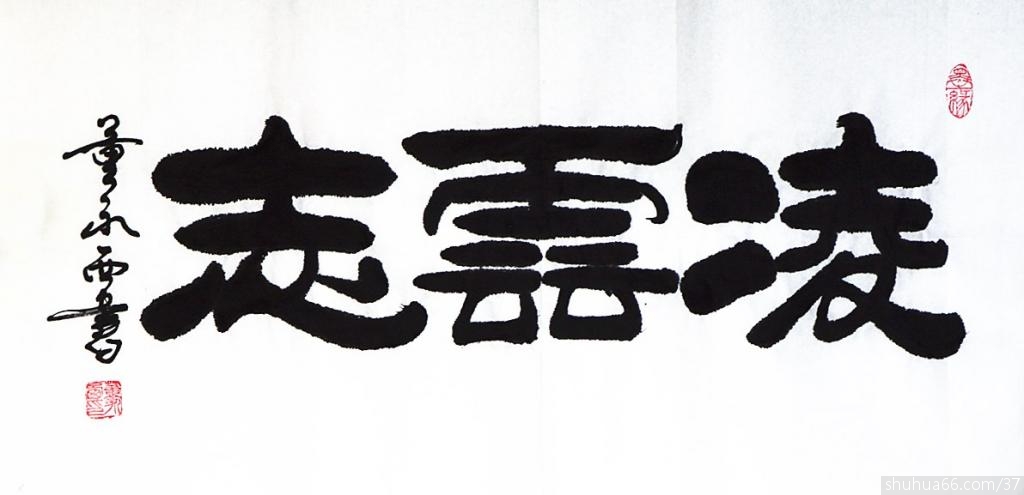 凌雲志
董永西書
shuhua66.com/37